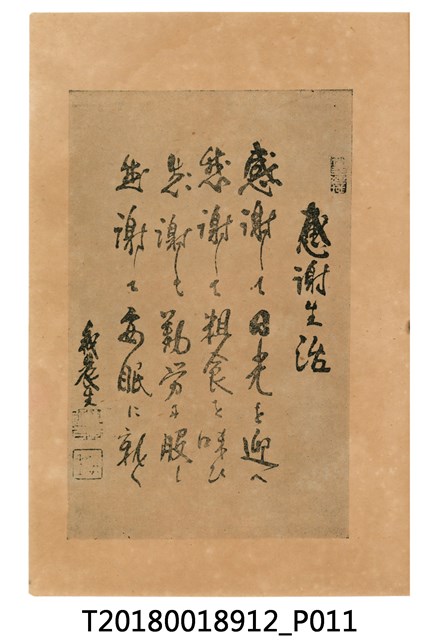 感謝生活
感謝して日光を迎へ
感謝して粗食を味ひ
感謝して勤労に服し
感謝して安眠に就く
農生
T20180018912_P011